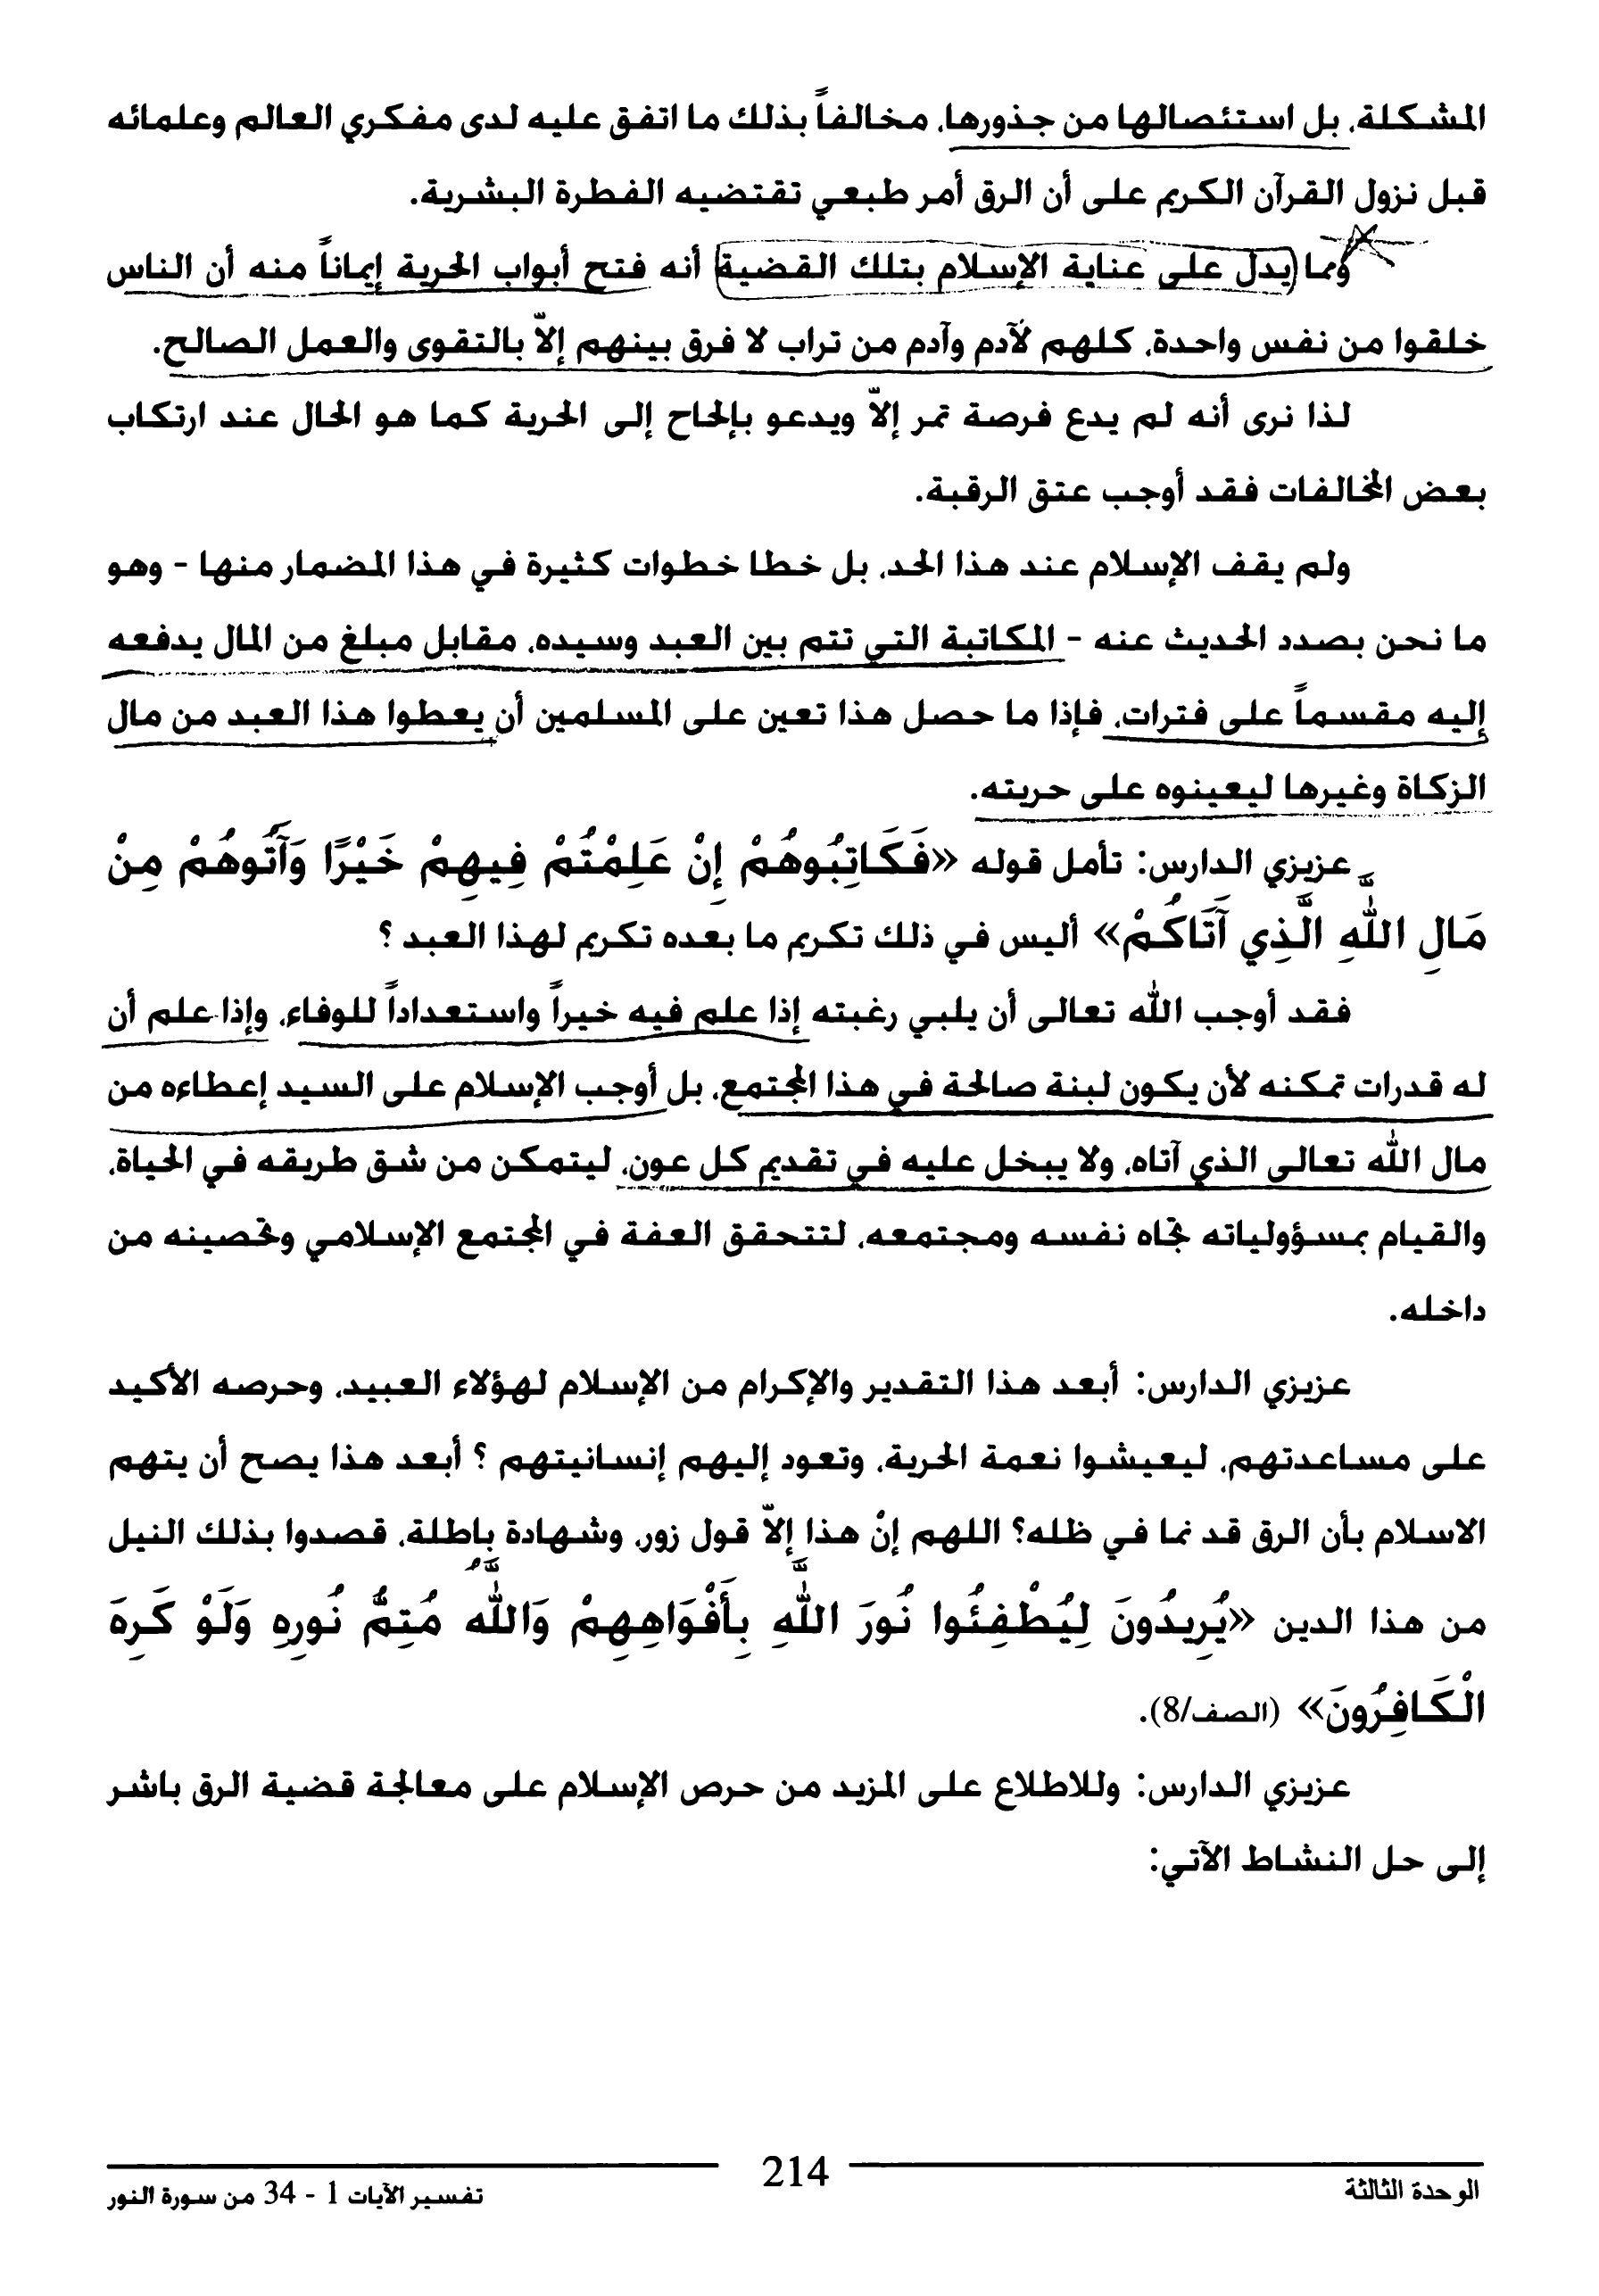 المشكلة، بل استئصالها من جذورها، مخالفاً بذلك ما اتفق عليه لدى مفكري العالم وعلمائه
قبل نزول القرآن الكريم على أن الرق أمر طبعي تقتضيه الفطرة البشرية.
ومما يدل على عناية الإسلام بتلك القضية أنه فتح أبواب الحرية إيماناً منه أن الناس
خلقوا من نفس واحدة، كلهم لآدم وآدم من تراب لا فرق بينهم إلاّ بالتقوى والعمل الصالح.
لذا نرى أنه لم يدع فرصة تمر إلاّ ويدعو بإلحاح إلى الحرية كما هو الحال عند ارتكاب
بعض المخالفات فقد أوجب عتق الرقبة.
ولم يقف الإسلام عند هذا الحد، بل خطا خطوات كثيرة في هذا المضمار منها - وهو
ما نحن بصدد الحديث عنه - المكاتبة التي تتم بين العبد وسيده، مقابل مبلغ من المال يدفعه
إليه مقسماً على فترات، فإذا ما حصل هذا تعين على المسلمين أن يعطوا هذا العبد من مال
الزكاة وغيرها ليعينوه على حريته.
عزيزي الدارس: تأمل قوله «فَكَاتِبُوهُمْ إِنْ عَلِمْتُمْ فِيهِمْ خَيْرًا وَآَتُوهُمْ مِنْ
مَالِ اللَّهِ الَّذِي آَتَاكُمْ» أليس في ذلك تكريم ما بعده تكريم لهذا العبد ؟
فقد أوجب الله تعالى أن يلبي رغبته إذا علم فيه خيراً واستعداداً للوفاء، وإذا علم أن
له قدرات تمكنه لأن يكون لبنة صالحة في هذا المجتمع، بل أوجب الإسلام على السيد إعطاءه من
مال الله تعالى الذي آتاه، ولا يبخل عليه في تقديم كل عون، ليتمكن من شق طريقه في الحياة،
والقيام بمسؤولياته تجاه نفسه ومجتمعه، لتتحقق العفة في المجتمع الإسلامي وتحصينه من
داخله.
عزيزي الدارس: أبعد هذا التقدير والإكرام من الإسلام لهؤلاء العبيد، وحرصه الأكيد
على مساعدتهم، ليعيشوا نعمة الحرية، وتعود إليهم إنسانيتهم ؟ أبعد هذا يصح أن يتهم
الاسلام بأن الرق قد نما في ظله؟ اللهم إنْ هذا إلاّ قول زور، وشهادة باطلة، قصدوا بذلك النيل
من هذا الدين «يُرِيدُونَ لِيُطْفِئُوا نُورَ اللَّهِ بِأَفْوَاهِهِمْ وَاللَّهُ مُتِمُّ نُورِهِ وَلَوْ كَرِهَ
الْكَافِرُونَ» (الصف/8).
عزيزي الدارس: وللاطلاع على المزيد من حرص الإسلام على معالجة قضية الرق باشر
إلى حل النشاط الآتي:
الوحدة الثالثة
214
تفسير الآيات 1 - 34 من سورة النور